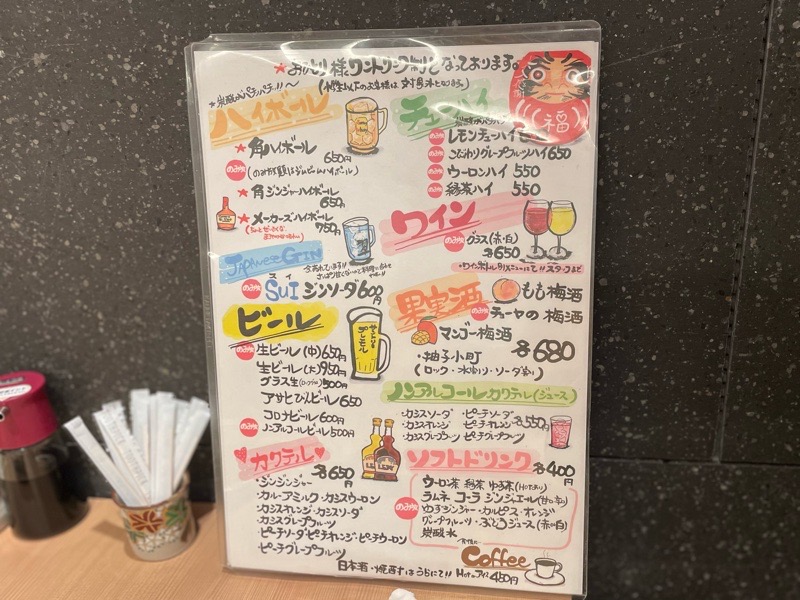 ★おひとり様ワンドリンク制となっております。
ハイボール
★角ハイボール
650円
のみ放
★角ジンジャーハイボール
650円
★メーカーズハイボール
750円
JAPANESE GIN
のみ放
スイ
SUI ジンソーダ 600円
ビール
のみ放
生ビール(中)650円
生ビール(大)950円
グラス生 500円
アサヒびんビール 650
コロナビール 600円
のみ放
ノンアルコールビール 500円
カクテル
各650円
・ジンジンジャー
・カルーアミルク・カシスウーロン
・カシスオレンジ・カシスソーダ
・カシスグレープフルーツ
・ピーチソーダ・ピーチオレンジ・ピーチウーロン
・ピーチグレープフルーツ
日本酒・焼酎すはうらにて!!
福
のみ放
レモンチューハイ
のみ放
こだわりグレープフルーツハイ 650
のみ放
ウーロンハイ 550
のみ放
緑茶ハイ 550
ワイン
のみ放
グラス(赤・白)
各650
果実酒
もも梅酒
のみ放
チョーヤの梅酒
マンゴー梅酒
・柚子小町
各680
(ロック・水わり・ソーダ割り)
ノンアルコールカクテル(ジュース)
・カシスソーダ ・ピーチソーダ
・カシスオレンジ ・ピーチオレンジ
・カシスグレープフルーツ ・ピーチグレープフルーツ
各550円
ソフトドリンク
各400円
のみ放
ウーロン茶 緑茶 ゆず茶
ラムネ コーラ ジンジャエール(甘口・辛口)
ゆずジンジャー・カルピス・オレンジ
グレープフルーツ・ぶどうジュース(赤・白)
炭酸水
Coffee
Hot or アイス 450円